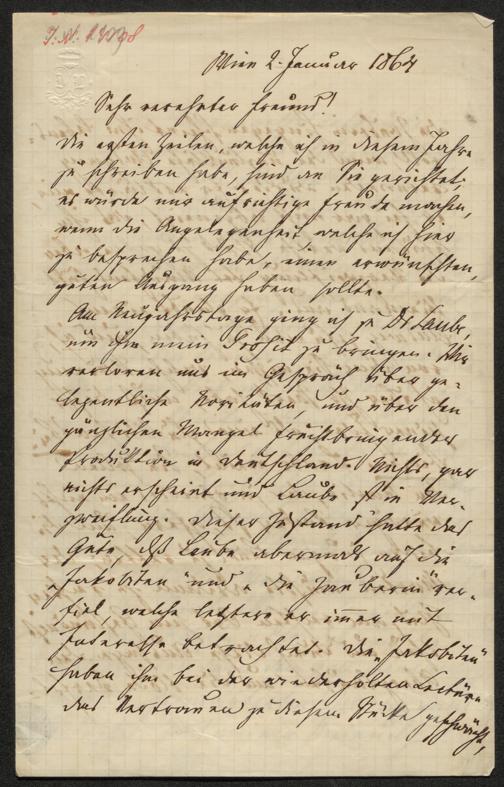 J. N. 
Wien 2. Januar 1864
Sehr verehrter Freund!
Die ersten Zeilen, welche ich in diesem Jahre
zu schreiben habe, sind an Sie gerichtet;
es würde mir aufrichtige Freude machen,
wenn die Angelegenheit, welche ich hier
zu besprechen habe, einen erwünschten,
guten Ausgang haben sollte.
Am Neujahrstage ging ich zu Dr Laube,
um ihm mein Prosit zu bringen. Wir
verloren uns im Gespräch über ge-
legentliche Novitäten, und über den
gänzlichen Mangel fruchtbringender
Produktion in Deutschland. Nichts, gar
nichts erscheint und Laube ist in Ver-
zweiflung. Dieser Zustand hatte das
Gute, dß Laube abermals auf die
"Jakobiten" und "die Zauberin" ver-
fiel, welche letztere er immer mit
Interesse betrachtet. Die "Jakobiten"
haben ihm bei der wiederholten Lectüre
das Vertrauen zu diesem Stücke geschwächt,